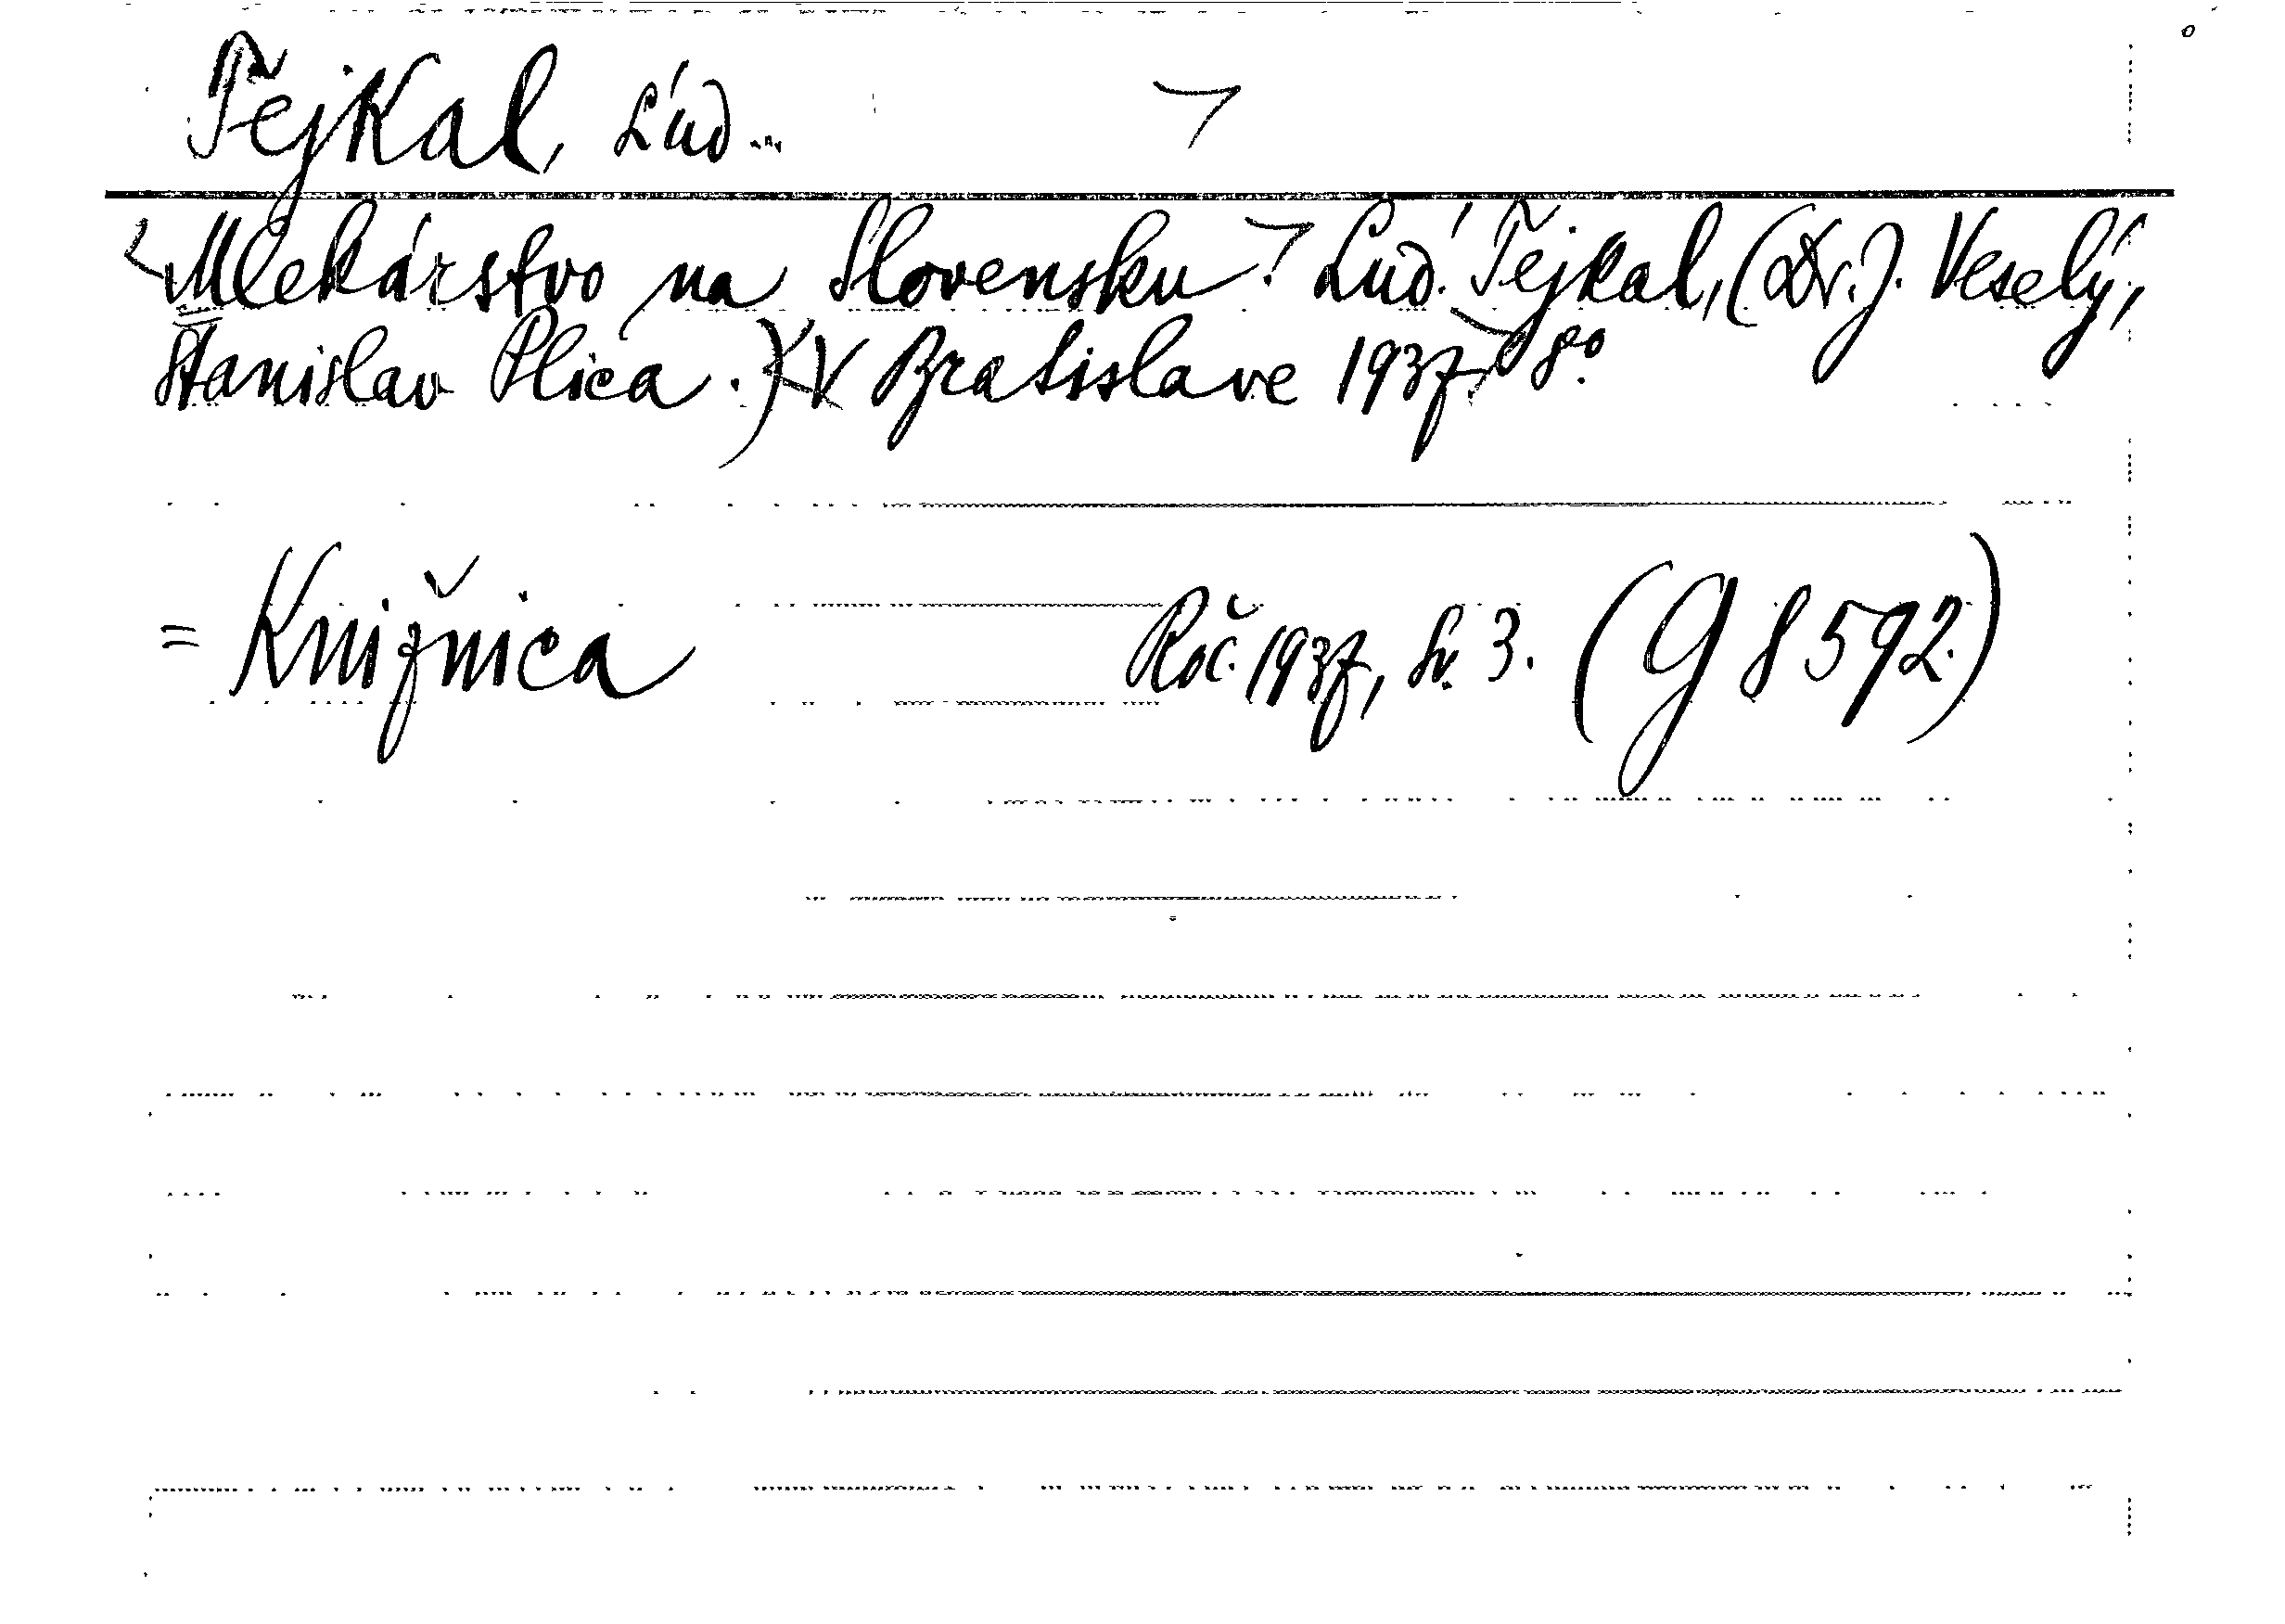 Tejkal, Ľud...
Mlekárstvo na Slovensku. Ľud. Tejkal, (Dr. J. Veselý,
Stanislav Plica.) V Bratislave 1937. 8°.
= Knižnica Roč. 1937, Sv. 3. (G 8592.)